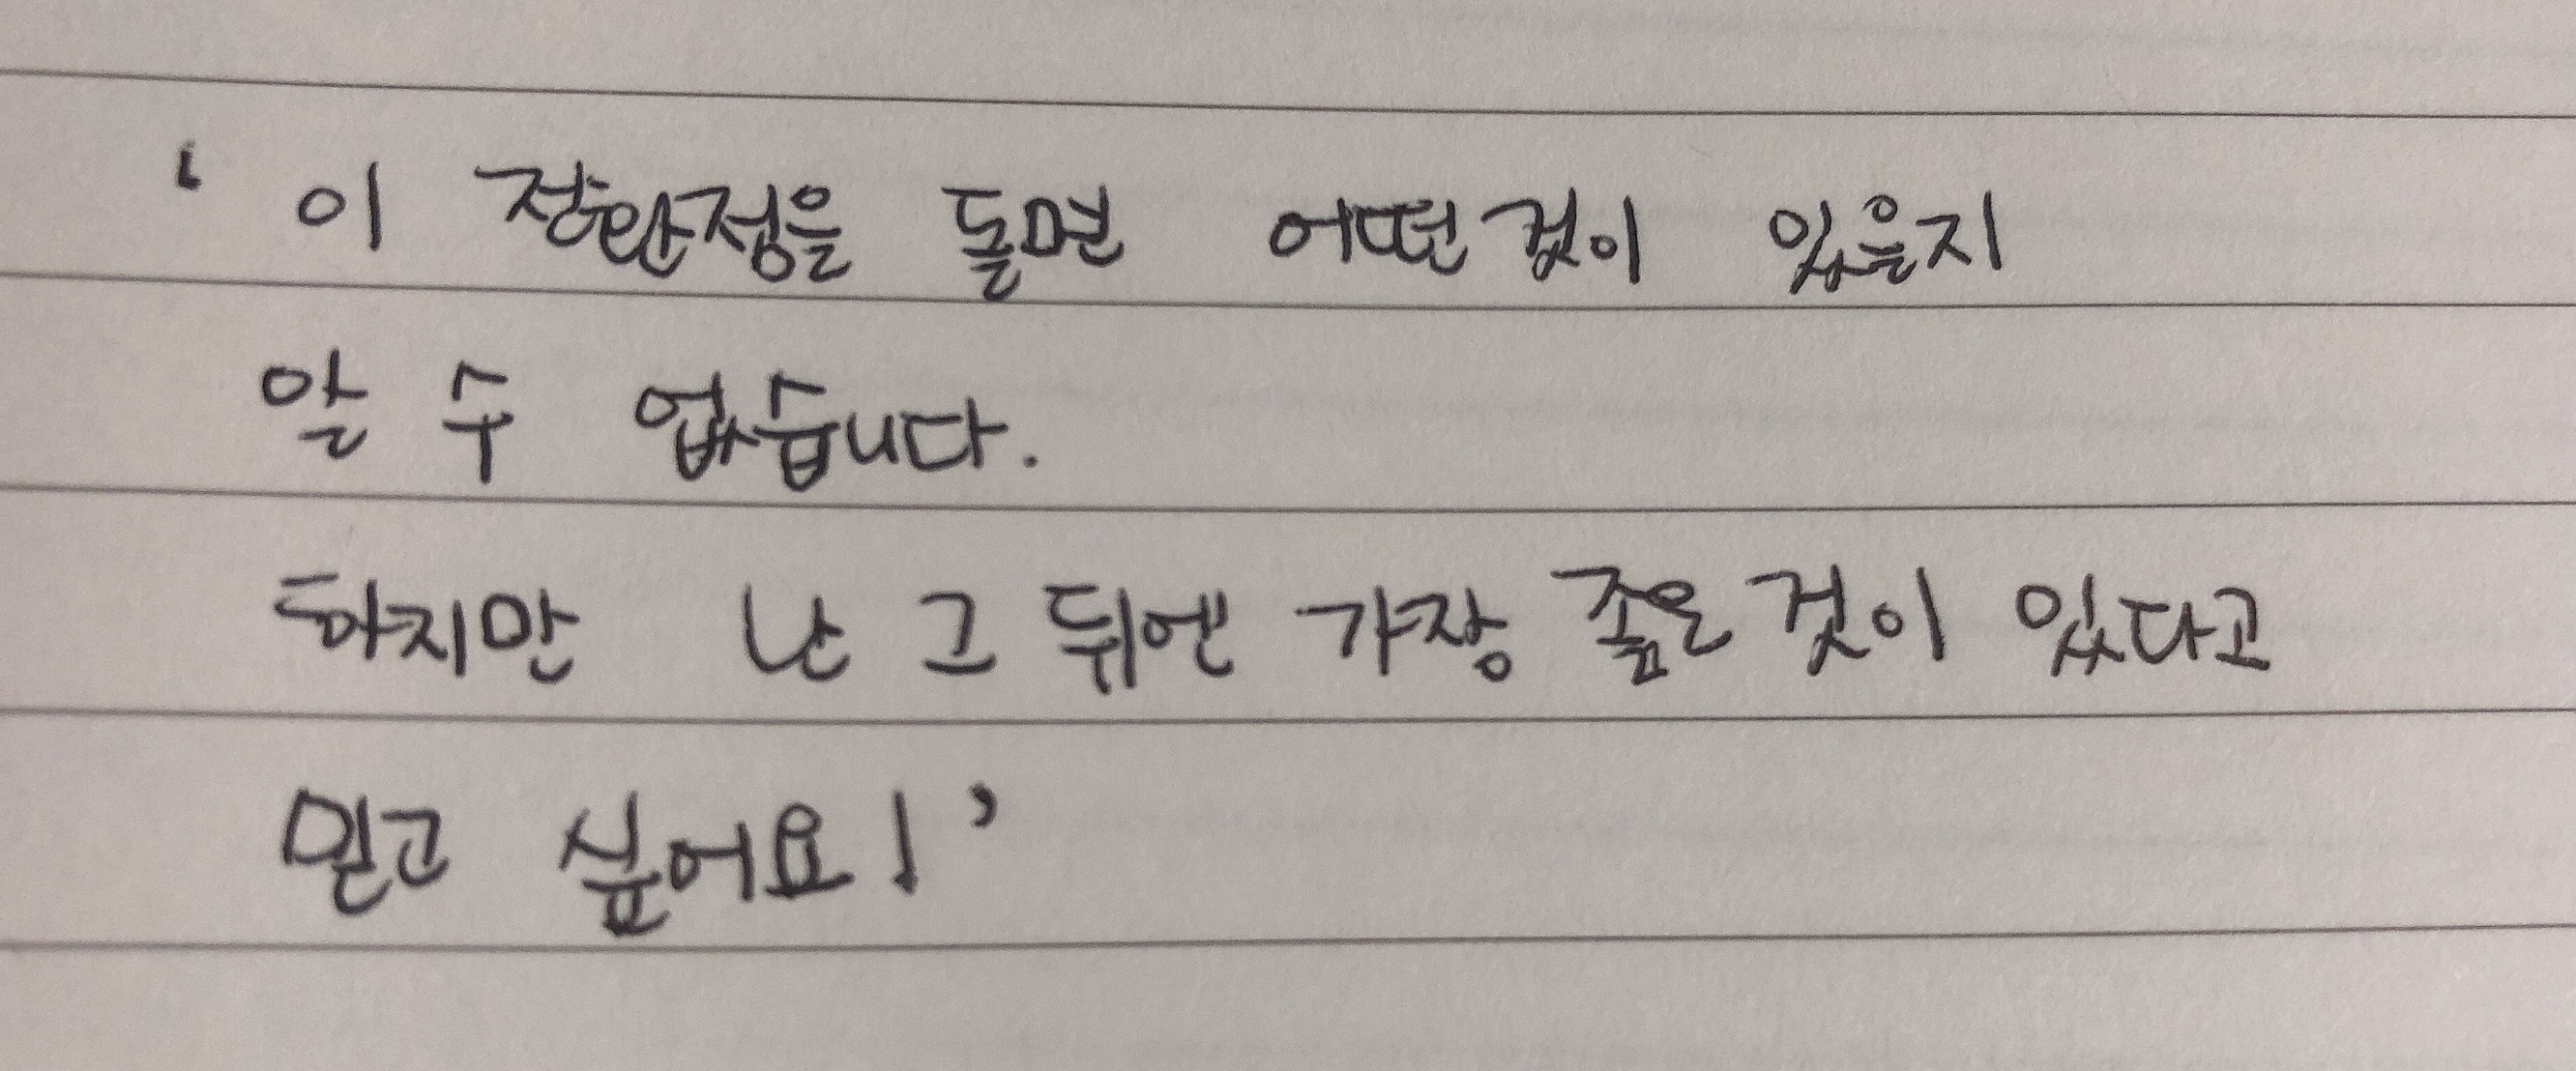 ‘ 이 장한정을 돌면 어떤것이 있을지
알 수 없습니다.
하지만 난 그 뒤엔 가장 좋은 것이 있다고
믿고 싶어요!’